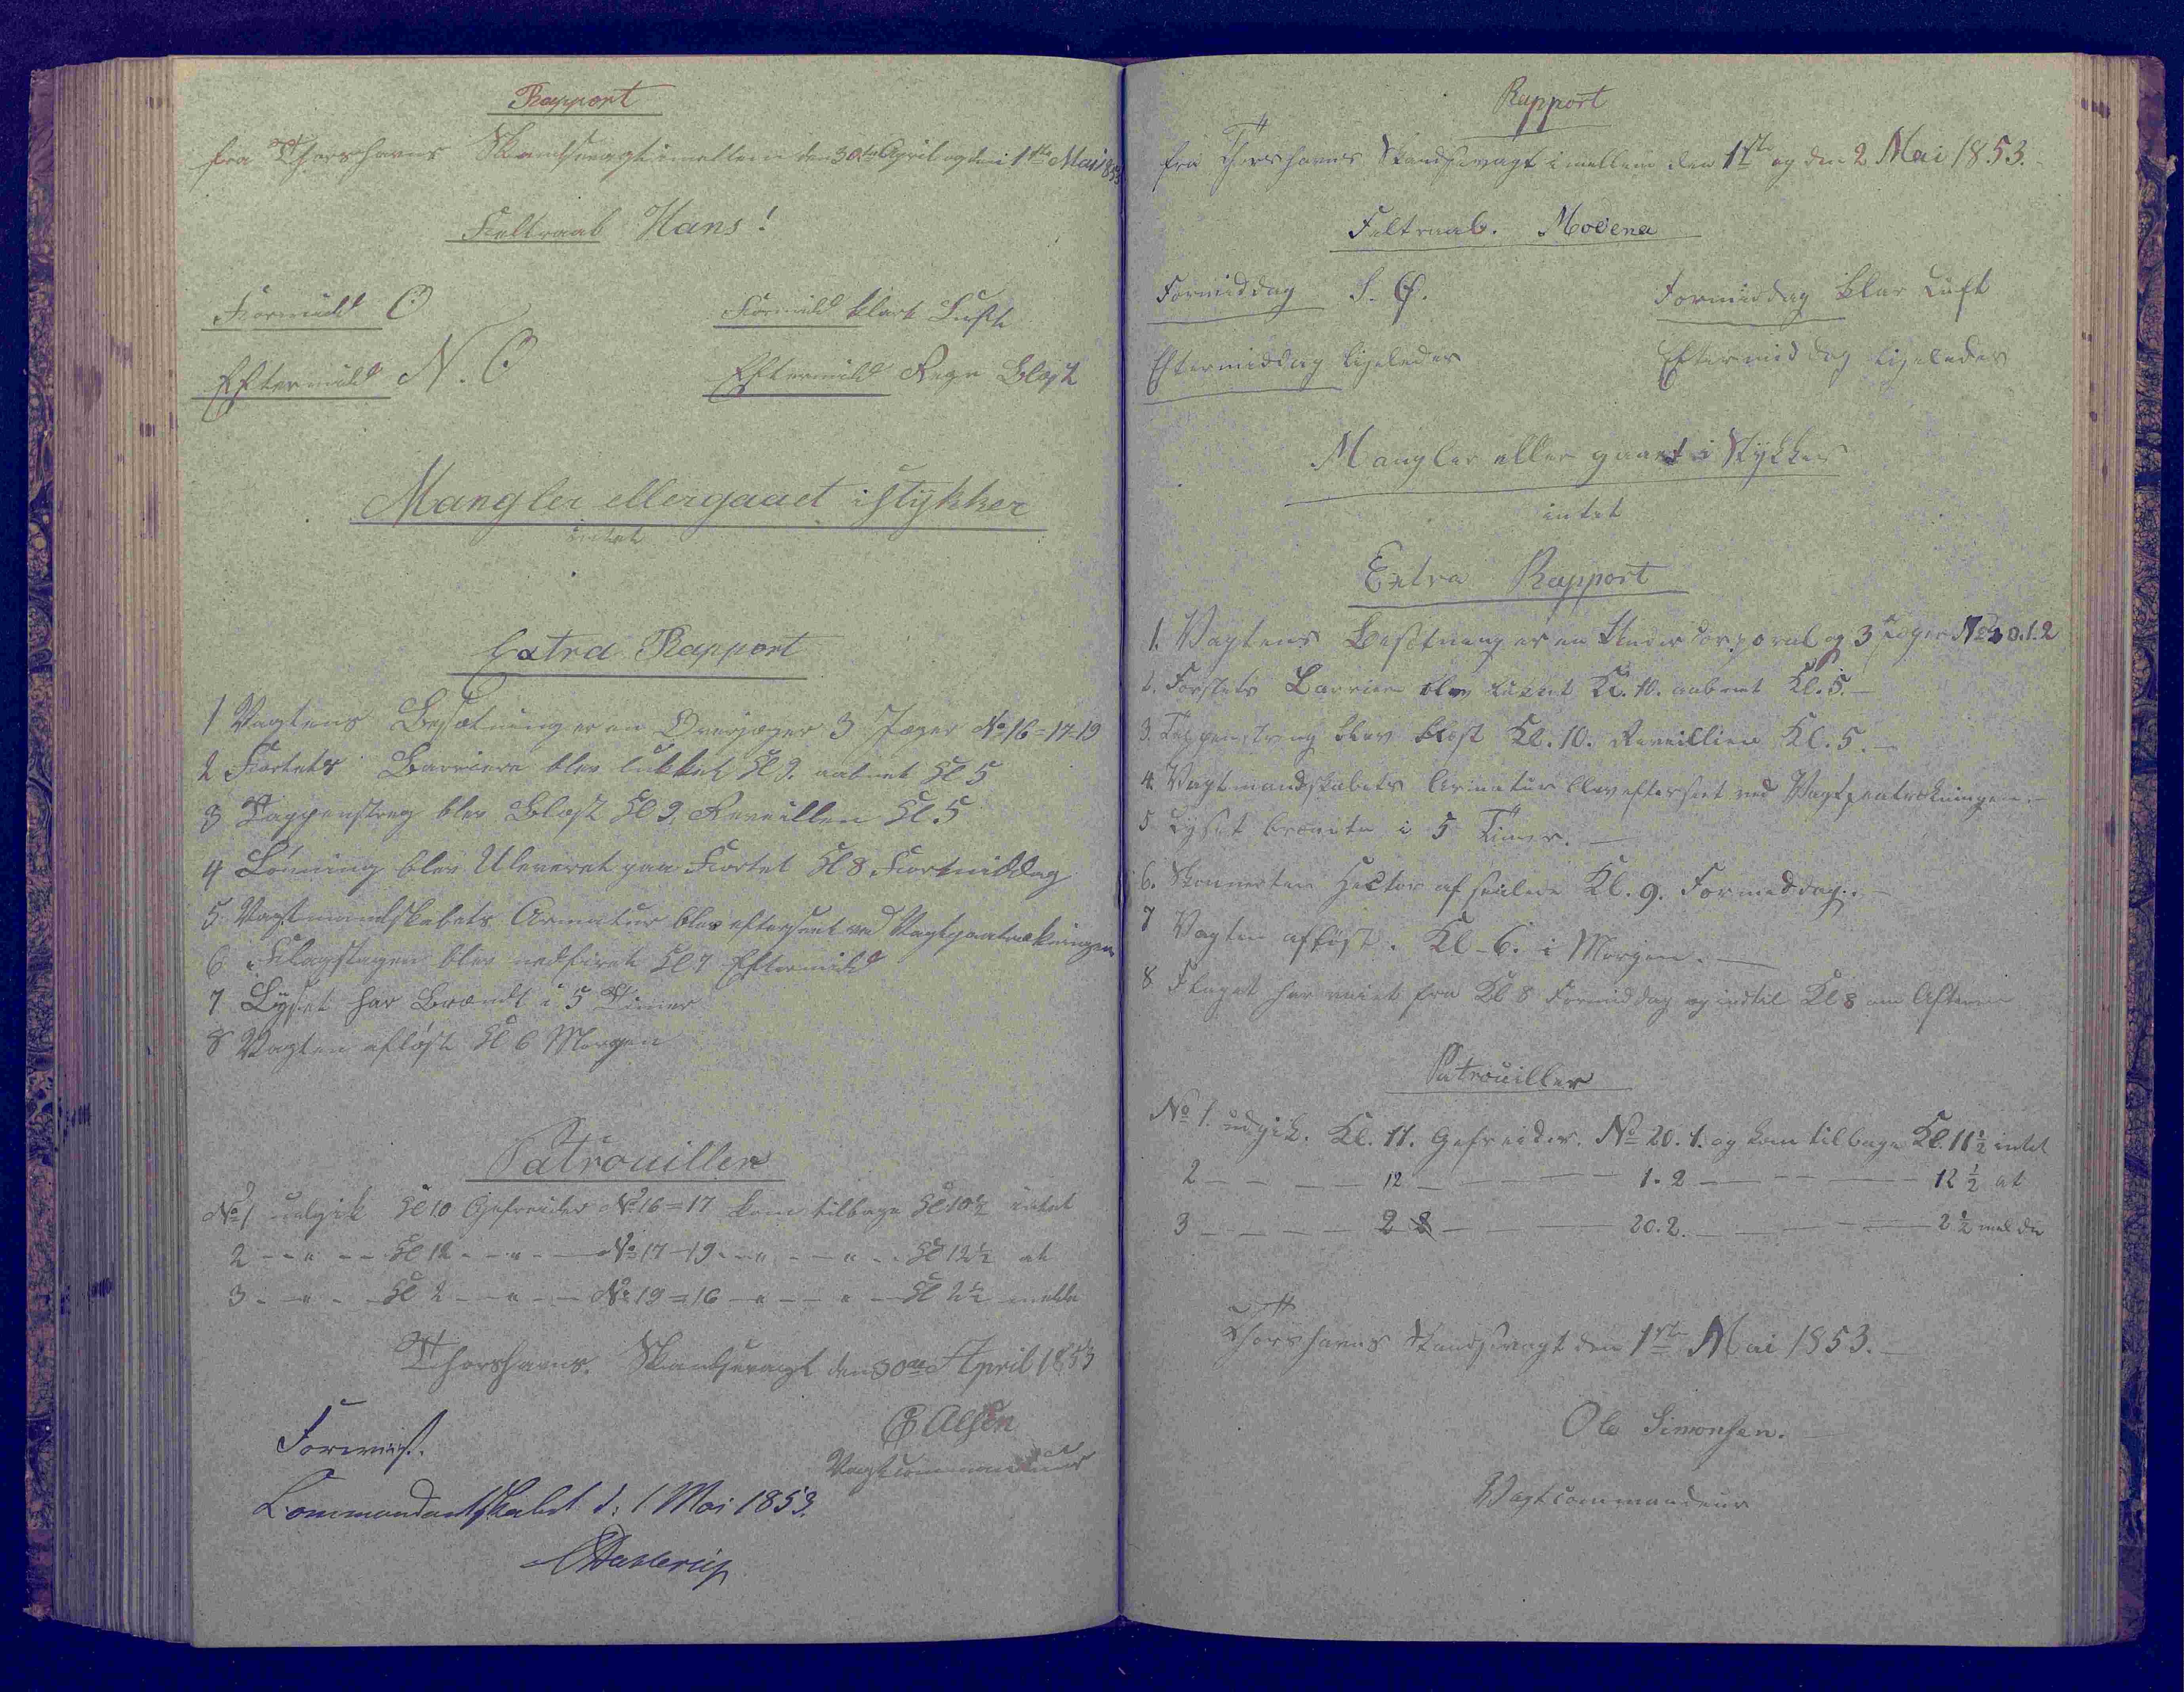 Rapport
fra Thorshavns Skandsevagt imellem den 30te April og den 1ste Mai 1853
Feltraab Hans!
Formidd O
Formidd klart Luft
Eftermidd N. O
Eftermidd Regn Blæst
Mangler eller gaaet i stykker
intet
Extra Rapport
1 Vagtens Besætning er en Overjæger 3 Jæger No 16=17=19
2 Fortets Barriere blev lukket Kl 9. aabnet Kl 5
3 Tappenstreg blev Blæst Kl 9. Reveillen Kl. 5
4 Lønning blev Uleveret paa Fortet Kl 8 Formiddag
5 Vagtmandskabets Armatur blev efterseet ved Vagtpaatrækningen
6 Flagstagen blev nedfiret Kl 7 Eftermidd
7 Lyset har Brændt i 5 Timer
8 Vagten afløst Kl 6 Morgen
Patrouiller
No 1 udgik Kl 10 Gefreider No 16=17 kom tilbage Kl 10½ intet
2 - - " - - Kl 12 - - " - - No 17-19 - - " - - " - - Kl 12½ at
3 - - " - - Kl 2 - - " - - No 19=16 - - " - - " - - Kl 2½ melde
Thorshavns. Skandsevagt den 30te April 1853
Forevist.
Olsen
Vagtcommandeur
Commandantskabet d: 1 Mai 1853.
Dahlerup
Rapport
fra Thorshavns Skandsevagt imellem den 1ste og den 2 Mai 1853.
Feltraab. Modena
Formiddag S. Ø.
Formiddag klar Luft
Eftermiddag ligeledes
Eftermiddag ligeledes
Mangler eller gaaet i Stykker
intet
Extra Rapport
1. Vagtens Besætning er en Under Corporal og 3 Jæger No 20.1.2
2. Forstets Barriere blev lukket Kl. 10. aabnet Kl. 5. —
3. Tappenstreg blev blæst Kl. 10. Reveillien Kl. 5. —
4. Vagtmandskabets Armatur blev efterseet ved Vagtpaatrækningen. —
5 Lyset brændte i 5 Timer. —
6. Skonnerten Hector afseilede Kl. 9. Formeddag. —
7 Vagten afløst. Kl - 6. i Morgen. —
8 Flaget har veiet fra Kl 8 Formiddag og indtil Kl 8 om Aftenen
Patrouiller
No 1. udgik. Kl. 11. Gefreider. No 20. 1. og kom tilbage Kl. 11½ intet
2 — — — 12 — — — 1. 2 — — — 12½ at
3 — — — 2 — — — 20. 2. — — — 2½ melde
Thorshavns Skandsevagt den 1ste Mai 1853. —
Ole Simonsen.
Vagtcommandeur